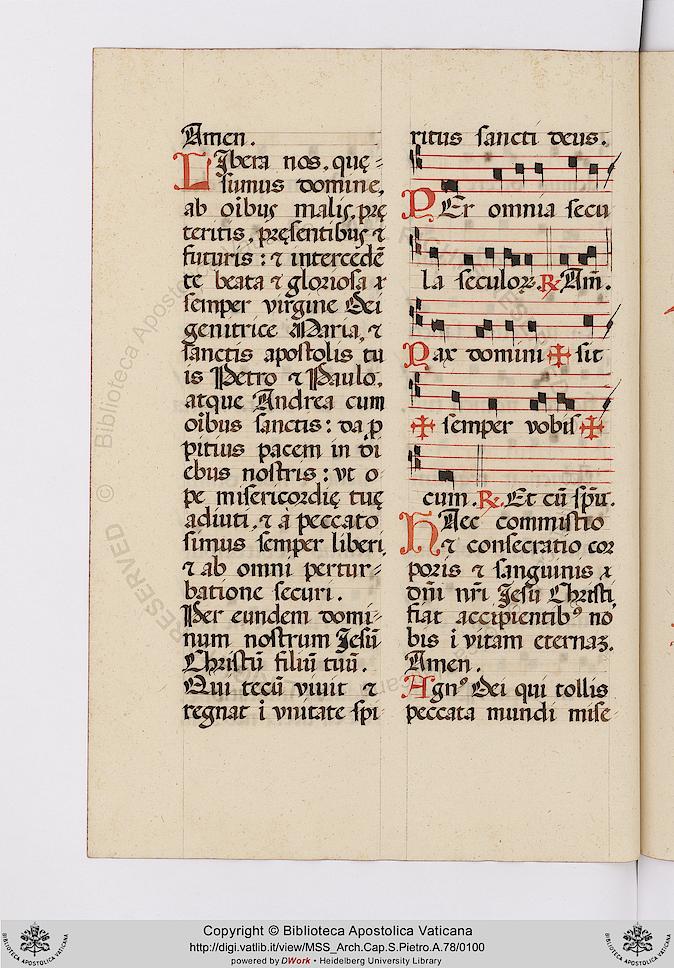 Amen.
LIbera nos, quę=
sumus domine,
ab oībus malis, prę
teritis, pręsentibus ⁊
futuris: ⁊ intercedē
te beata ⁊ gloriosa ⁊
semper virgine Dei
genitrice Maria, ⁊
sanctis apostolis tu
is Petro ⁊ Paulo,
atque Andrea cum
oībus sanctis: da p
pitius pacem in di
ebus nostris: vt o-
pe misericordię tuę
adiuti, ⁊ à peccato
simus semper liberi,
⁊ ab omni pertur=
batione securi.
Per eundem domi-
num nostrum Jesū
Christū filiū tuū.
Qui tecū viuit ⁊
regnat ī vnitate spi-
ritus sancti deus.
PEr omnia secu
la seculoꝝ. ℟. Am̄.
Pax domini ✠ sit
✠ semper vobis ✠
cum. ℟. Et cū spū.
HAec commistio
⁊ consecratio cor
poris ⁊ sanguinis ⁊
dn̄i nr̄i Jesu Christi,
fiat accipientibꝰ no
bis ī vitam eternaꝫ.
Amen.
Agnꝰ Dei qui tollis
peccata mundi mise-
RESERVED © Biblioteca Apostolica Vaticana
Copyright © Biblioteca Apostolica Vaticana
http://digi.vatlib.it/view/MSS_Arch.Cap.S.Pietro.A.78/0100
powered by DWork • Heidelberg University Library
BIBLIOTECA APOSTOLICA VATICANA
BIBLIOTECA APOSTOLICA VATICANA